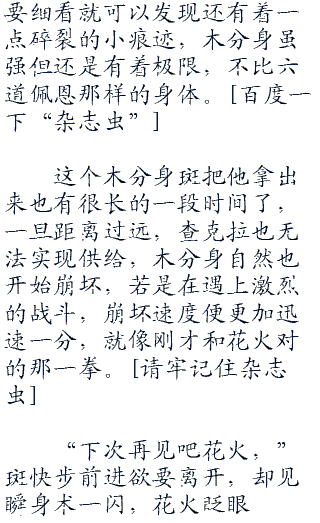 要细看就可以发现还有着一
点碎裂的小痕迹，木分身虽
强但还是有着极限，不比六
道佩恩那样的身体。[百度一
下“杂志虫”]
这个木分身斑把他拿出
来也有很长的一段时间了，
一旦距离过远，查克拉也无
法实现供给，木分身自然也
开始崩坏，若是在遇上激烈
的战斗，崩坏速度便更加迅
速一分，就像刚才和花火对
的那一拳。[请牢记住杂志
虫]
“下次再见吧花火，”
斑快步前进欲要离开，却见
瞬身术一闪，花火眨眼